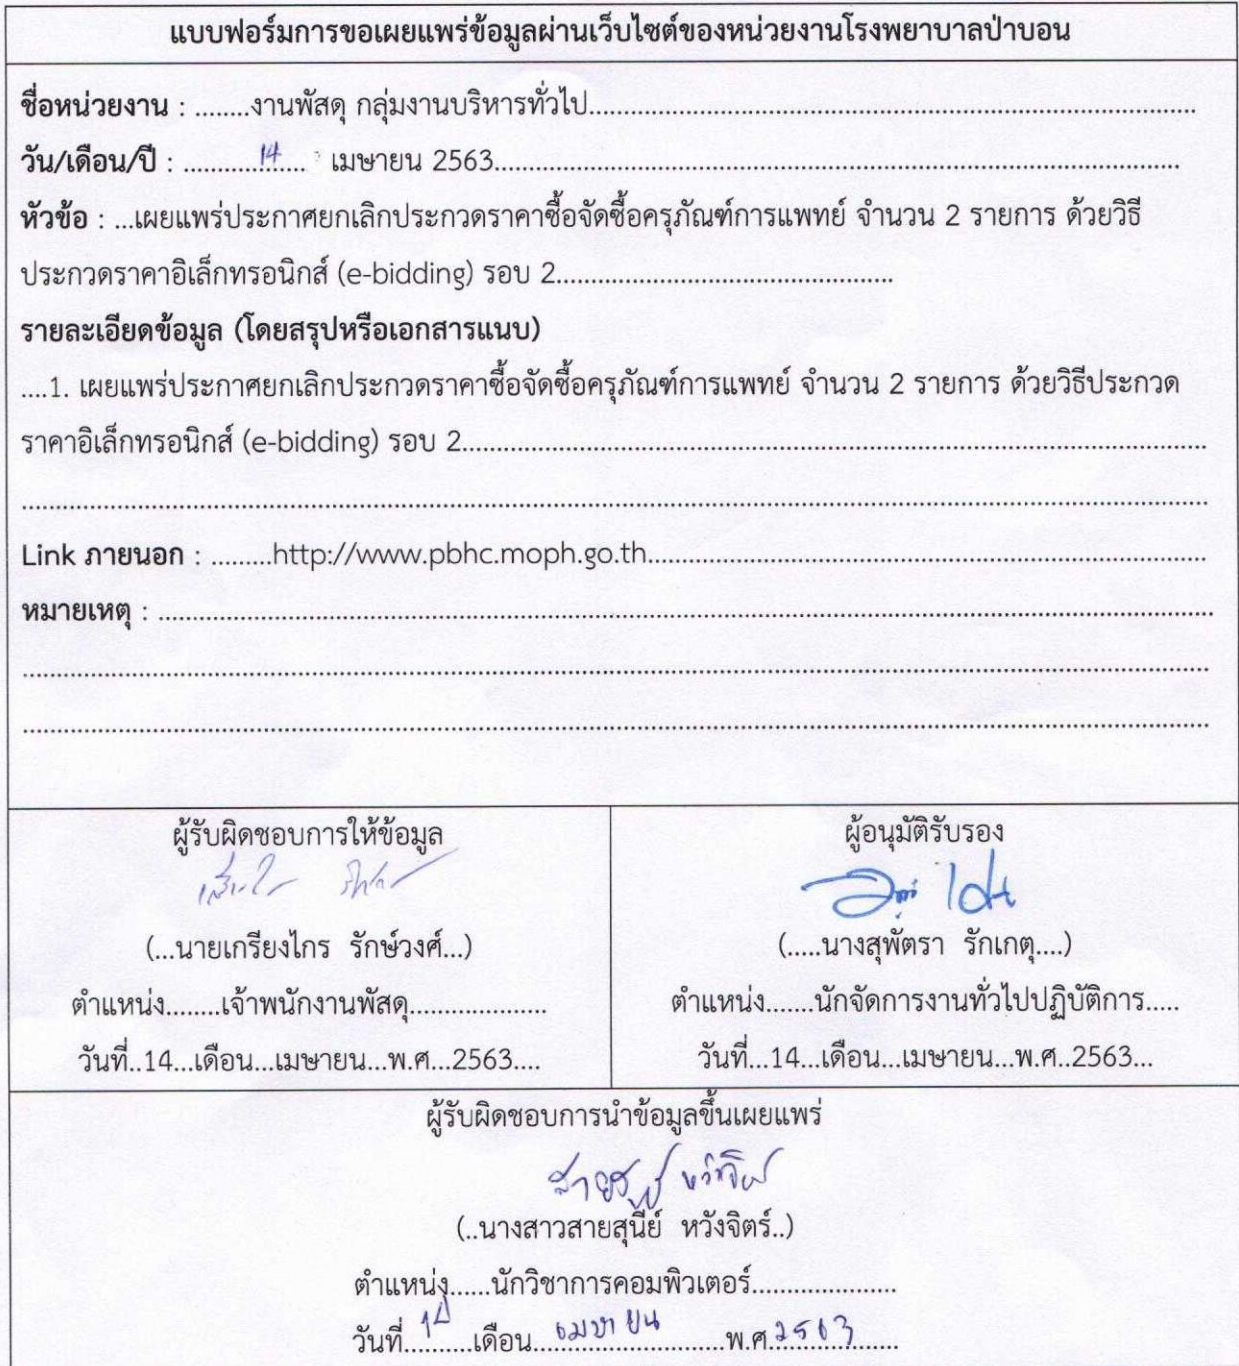 แบบฟอร์มการขอเผยแพร่ข้อมูลผ่านเว็บไซต์ของหน่วยงานโรงพยาบาลป่าบอน
ชื่อหน่วยงาน : ........งานพัสดุ กลุ่มงานบริหารทั่วไป........
วัน/เดือน/ปี : ........14.... เมษายน 2563........
หัวข้อ : ...เผยแพร่ประกาศยกเลิกประกวดราคาซื้อจัดซื้อครุภัณฑ์การแพทย์ จำนวน 2 รายการ ด้วยวิธี
ประกวดราคาอิเล็กทรอนิกส์ (e-bidding) รอบ 2........
รายละเอียดข้อมูล (โดยสรุปหรือเอกสารแนบ)
....1. เผยแพร่ประกาศยกเลิกประกวดราคาซื้อจัดซื้อครุภัณฑ์การแพทย์ จำนวน 2 รายการ ด้วยวิธีประกวด
ราคาอิเล็กทรอนิกส์ (e-bidding) รอบ 2........
Link ภายนอก : .........http://www.pbhc.moph.go.th........
หมายเหตุ : ........
ผู้รับผิดชอบการให้ข้อมูล
(...นายเกรียงไกร รักษ์วงศ์...)
ตำแหน่ง........เจ้าพนักงานพัสดุ....................
วันที่..14...เดือน...เมษายน...พ.ศ...2563....
ผู้อนุมัติรับรอง
(.....นางสุพัตรา รักเกตุ....)
ตำแหน่ง.......นักจัดการงานทั่วไปปฏิบัติการ.....
วันที่...14...เดือน...เมษายน...พ.ศ..2563...
ผู้รับผิดชอบการนำข้อมูลขึ้นเผยแพร่
สายสุนีย์ หวังจิตร์
(..นางสาวสายสุนีย์ หวังจิตร์..)
ตำแหน่ง......นักวิชาการคอมพิวเตอร์.....................
วันที่..14....เดือน...เมษายน.......พ.ศ.2563.......